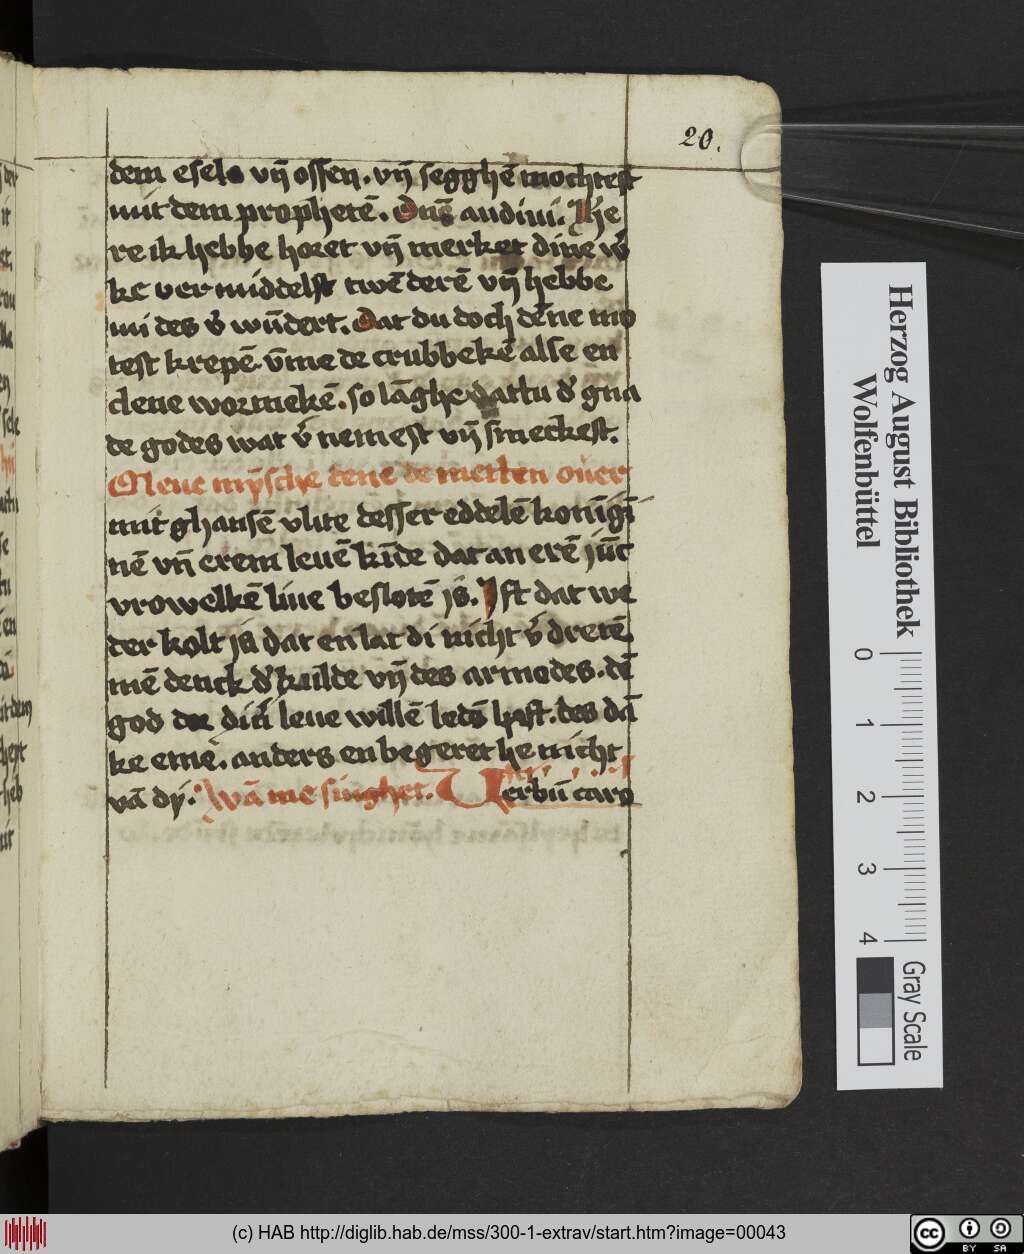 20.
dem esele vn̄ ossen. vn̄ segghē mochtest
mit dem prophetē. Dn̄s audiui. Jhe
re ik hebbe horet vn̄ merket dine w̾
ke vermiddelst twē derē vn̄ hebbe
mi des v̾ wūdert. Dat du doch dēne mo
test krepē. v̄me de crubbekē alse en
clene wormekē. so lāghe dattu d̾ gna
de godes wat v̾nemest vn̄ smeckest.
Leue mȳsche tene de metten ouer
mit ghansē vlite desser eddelē konīgī
nē vn̄ erem leuē kīde dat an erē jūc
vrowelkē liue beslotē js. Jst dat we
der kolt js dat en lat di nicht v̾dretē
mē denck d̾ kulde vn̄ des armodes. dē
god dor dinē leue willē ledē hest. des dā
ke eme. anders en begeret he nicht
vā dy. Wā me singhet. Uerbū caro
Herzog August Bibliothek
Wolfenbüttel
0 1 2 3 4
Gray Scale
(c) HAB http://diglib.hab.de/mss/300-1-extrav/start.htm?image=00043
cc BY SA